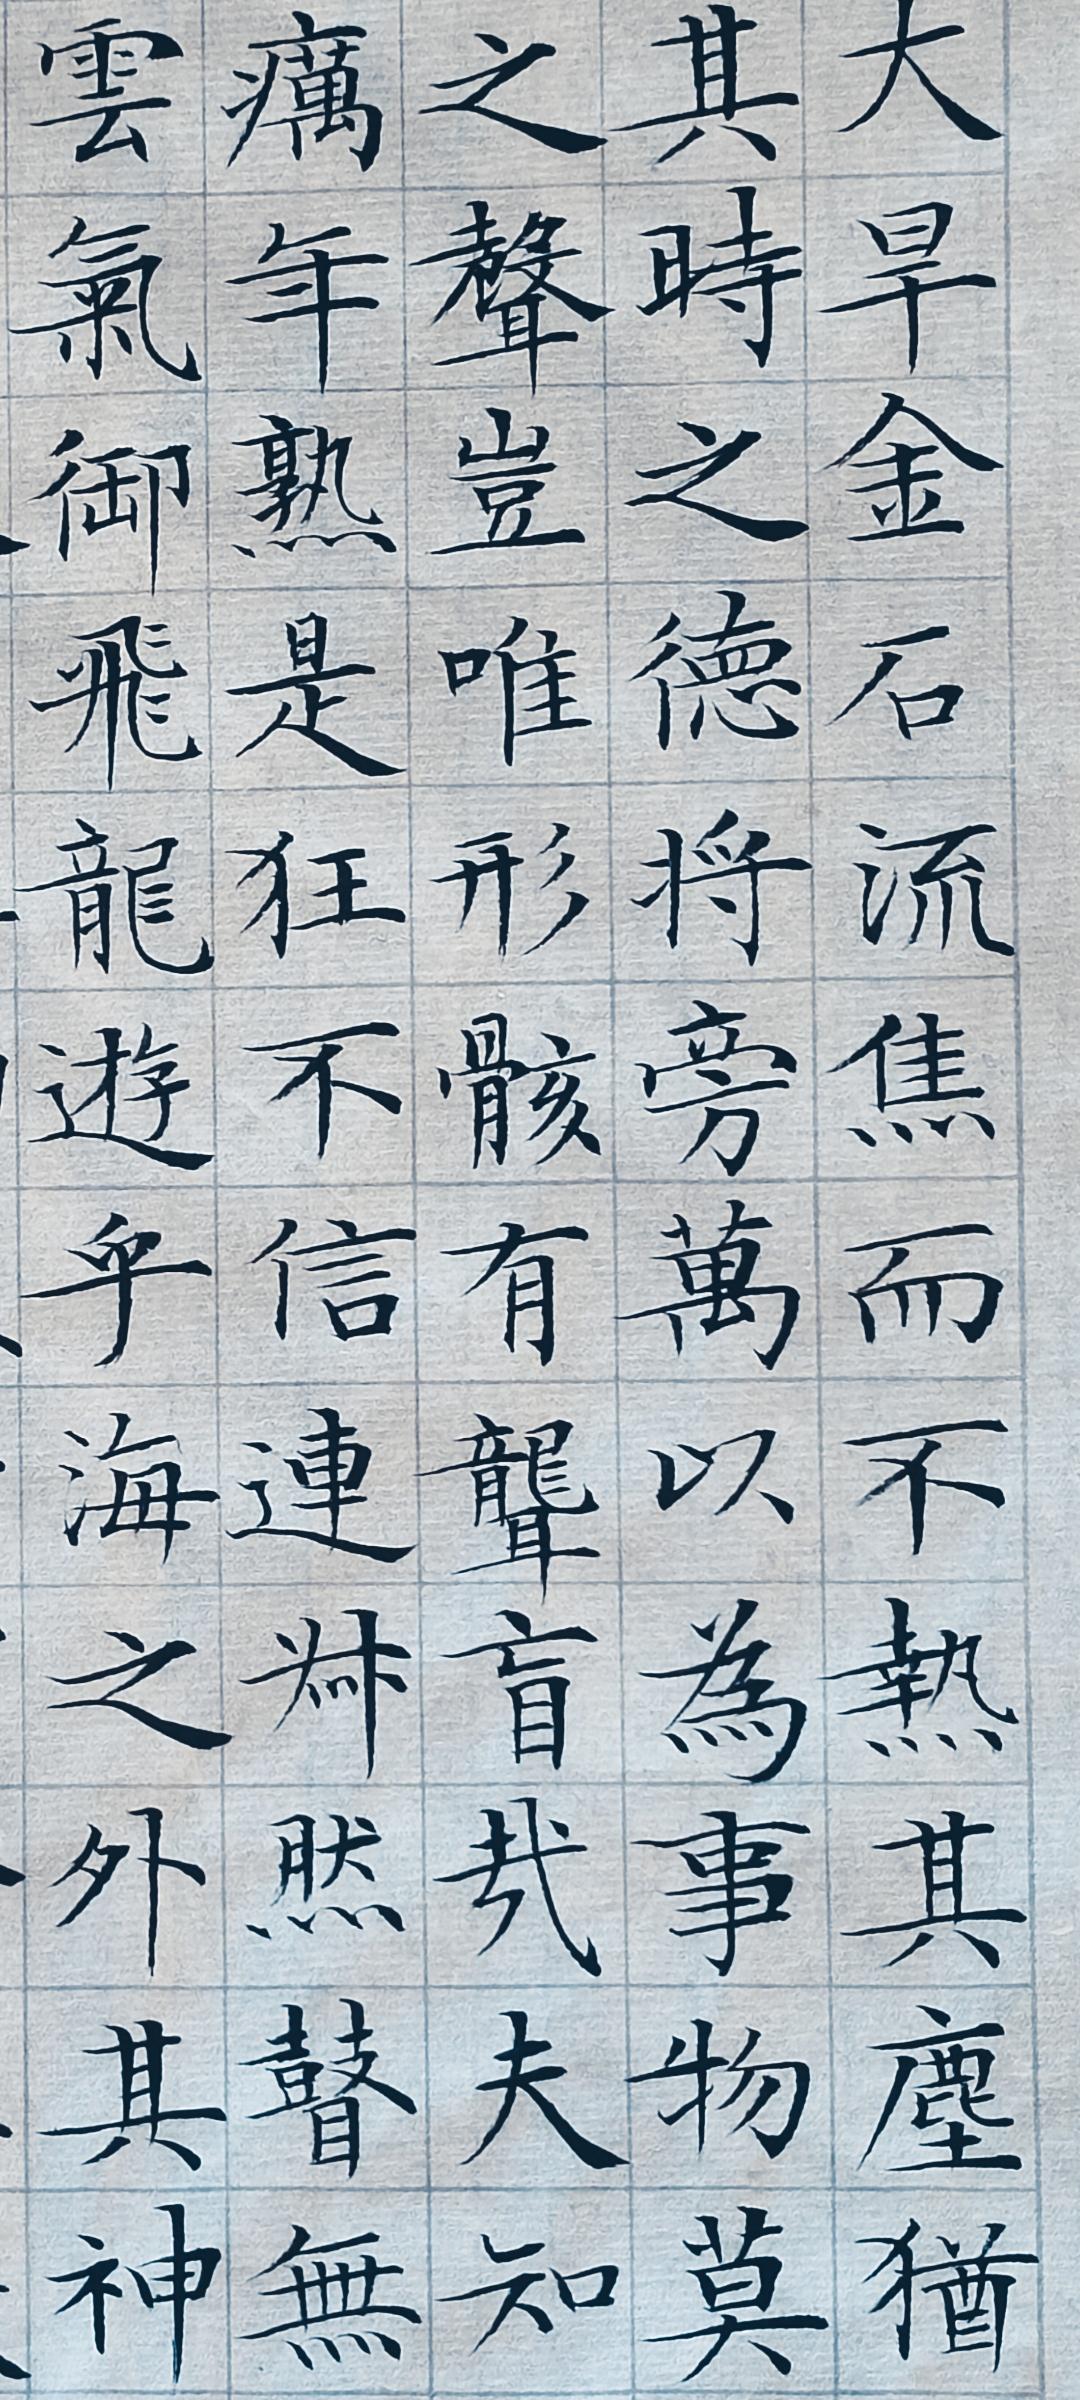 大旱金石流焦而不熱其塵猶
其時之德将旁萬以為事物莫
之聲豈唯形骸有聾盲哉夫知
癘年熟是狂不信連叔然瞽無
雲氣御飛龍遊乎海之外其神